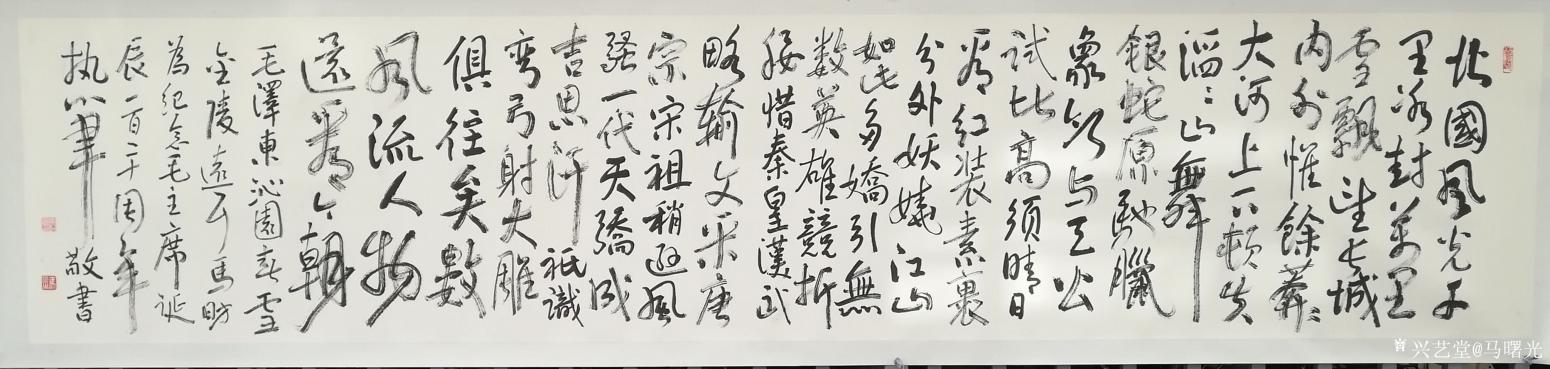 北國風光千
里冰封萬里
雪飄望長城
内外惟餘莽〻
大河上下頓失
滔〻山舞
銀蛇原馳臘
象欲与天公
試比高須晴日
看红装素裹
分外妖娆江山
如此多嬌引無
数英雄競折
腰惜秦皇漢武
略输文采唐
宗宋祖稍遜風
骚一代天驕成
吉思汗祇識
弯弓射大雕
俱往矣數
風流人物
還看今朝
毛澤東沁園春雪
金陵遠
為纪念毛主席诞
辰一百二十周年
执筆
敬書
兴艺堂@马曙光